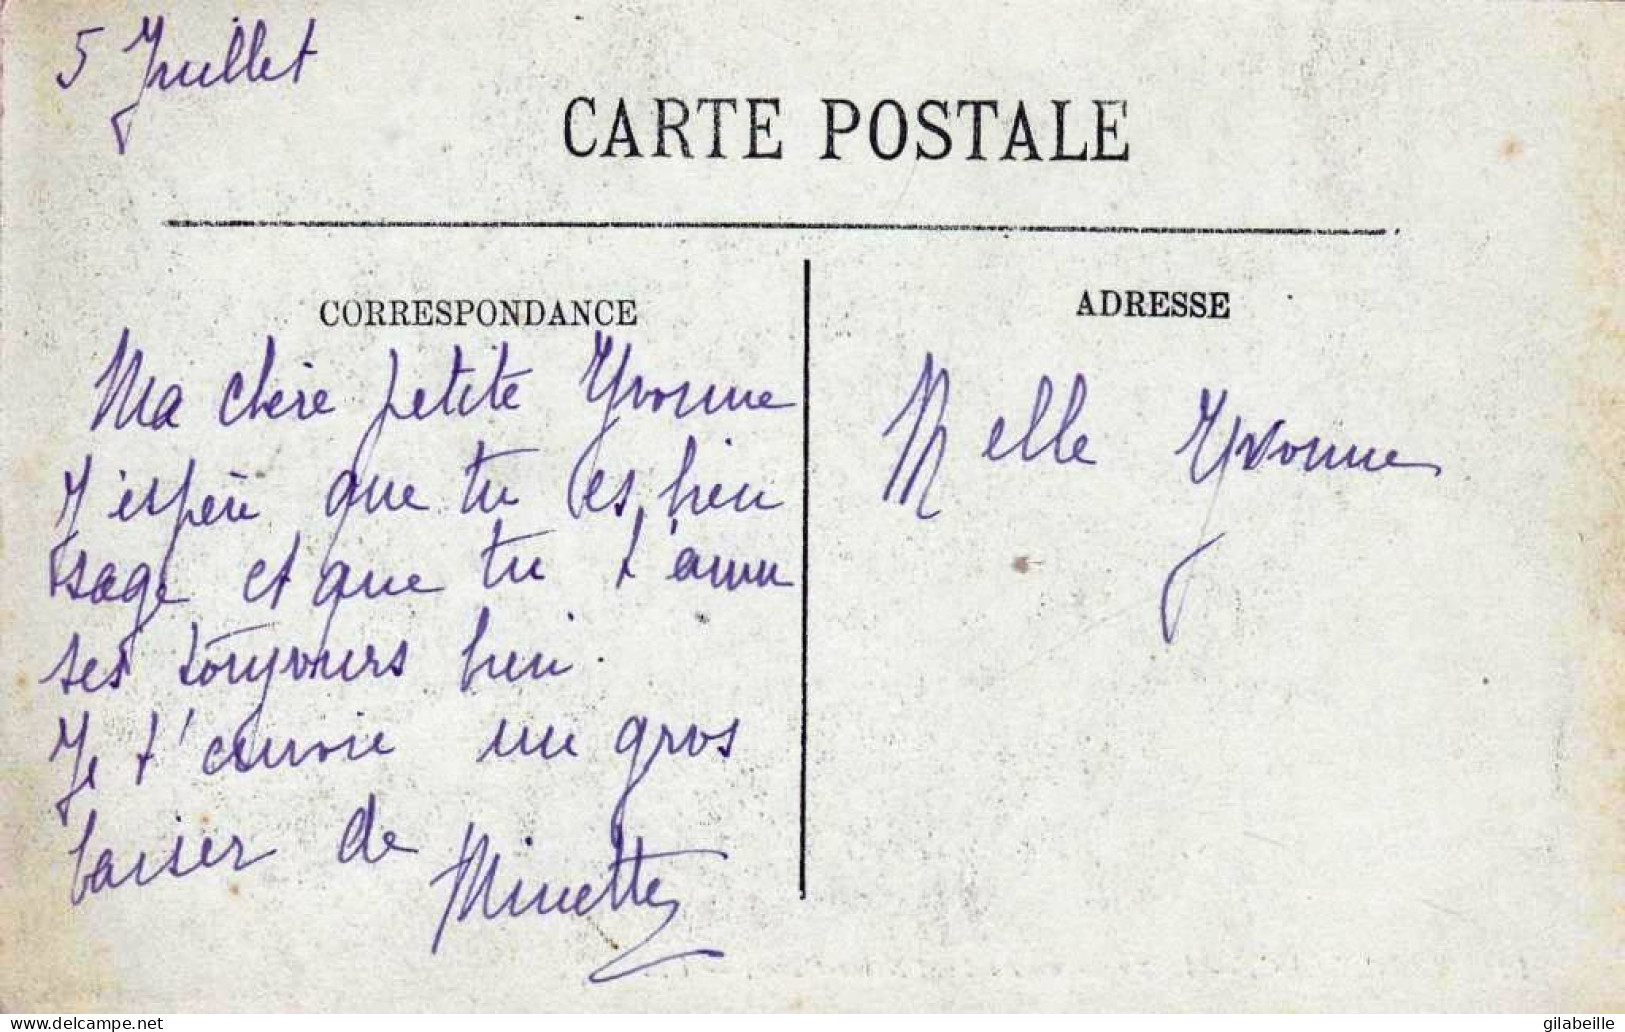 5 Juillet
CARTE POSTALE
CORRESPONDANCE
Ma chère petite Yvonne
J'espère que tu es bien
sage et que tu t'amu
ses toujours bien.
Je t'envoie un gros
baiser de
Minette
ADRESSE
Melle Yvonne
delcampe.net
gilabeille